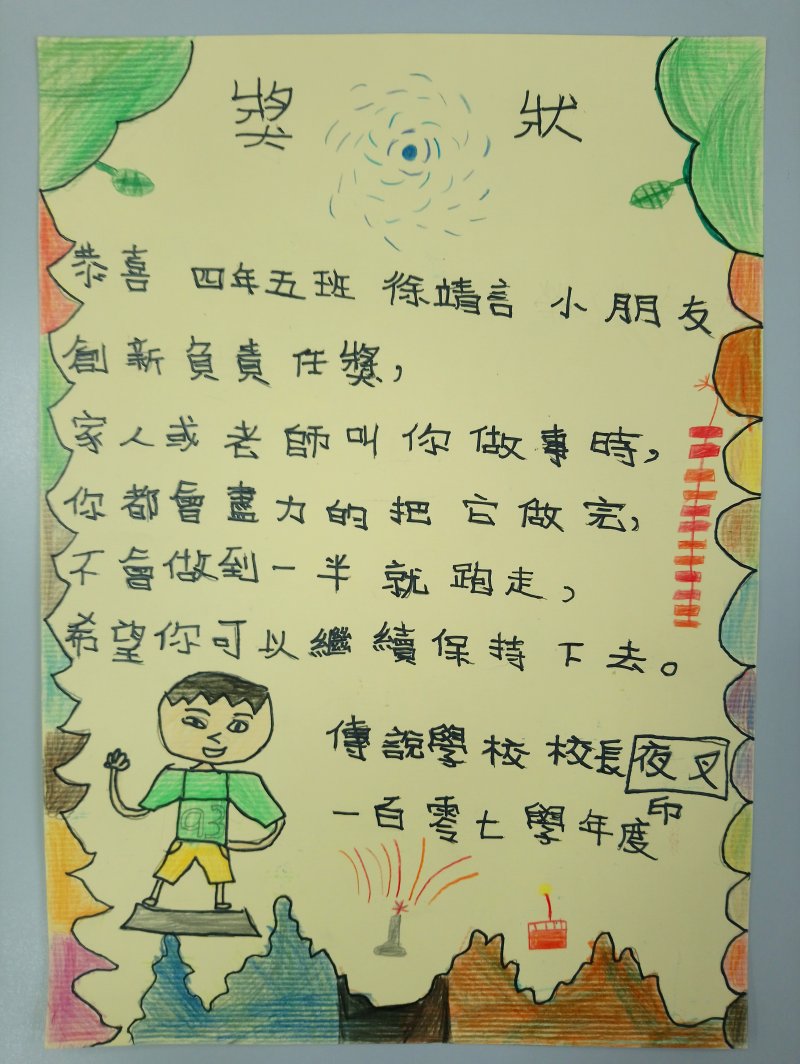 獎 狀
恭喜 四年五班 徐靖言 小朋友
創新負責任獎,
家人或老師叫你做事時,
你都會盡力的把它做完,
不會做到一半就跑走,
希望你可以繼續保持下去。
傳說學校 校長 夜叉
印
一百零七學年度
93